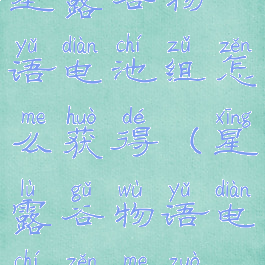 星露谷物
yǔ diàn chí zǔ zěn
语电池组怎
me huò dé xīng
么获得（星
lù gǔ wù yǔ diàn
露谷物语电
chí zěn me zuò